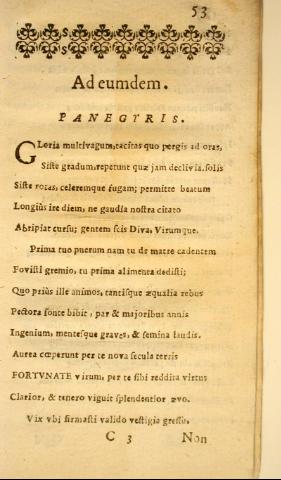 53
Ad eumdem.
PANEGYRIS.
GLoria multivagum, tacitas quo pergis ad oras,
Siste gradum, repetunt quæ jam declivia solis
Siste rotas, celeremque fugam; permitte beatum
Longiùs ire diem, ne gaudia nostra citato
Abripiat cursu; gentem scis Diva, Virumque.
Prima tuo puerum nam tu de matre cadentem
Fovisti gremio, tu prima alimenta dedisti;
Quo priùs ille animos, tantisque æqualia rebus
Pectora fonte bibit, par & majoribus annis
Ingenium, mentesque graves, & semina laudis.
Aurea cœperunt per te nova secula terris
FORTVNATE virum, per te sibi reddita virtus
Clarior, & tenero viguit splendentior ævo.
Vix vbi firmasti valido vestigia gressu,
C 3 Non